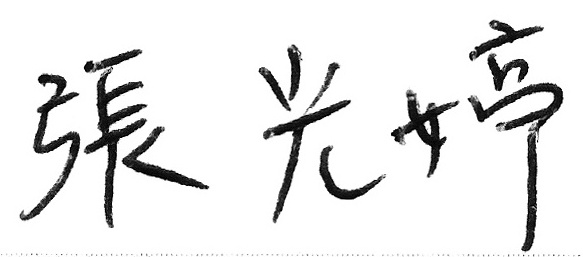 張光婷